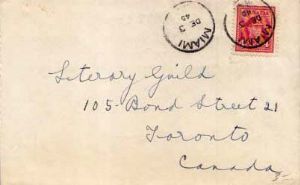 MIAMI
DE 3
45
MIAMI
DE 3
Literary Guild
105 - Bond Street 21
Toronto
Canada